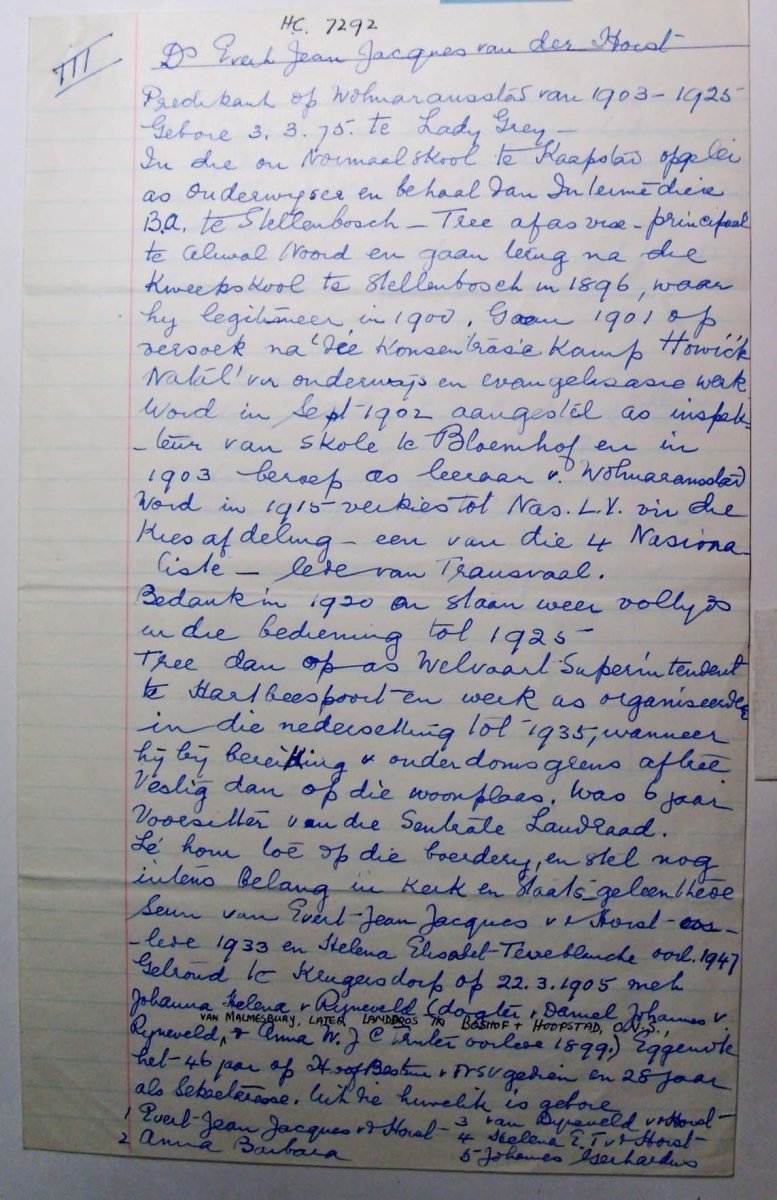 H.C. 7292
III
Ds Evert Jean Jacques van der Horst
Predikant op Wolmaransstad van 1903 - 1925
Gebore 3.3.75. te Lady Grey -
In die ou Normaalskool te Kaapstad opgelei
as onderwyser en behaal dan Intermediere
B.A. te Stellenbosch - Tree af as vise-principaal
te Aliwal Noord en gaan terug na die
Kweekskool te Stellenbosch in 1896, waar
hy legitimeer in 1900. Gaan 1901 op
versoek na die Konsentrasie Kamp Howick
Natal vir onderwys en evangelisasie werk
Word in Sept 1902 aangestel as inspek-
-teur van skole te Bloemhof en in
1903 beroep as leeraar v. Wolmaransstad
Word in 1915 verkies tot Nas. L.V. vir die
Kiesafdeling - een van die 4 Nasiona-
liste - lede van Transvaal.
Bedank in 1920 en staan weer voltyds
in die bediening tot 1925
Tree dan op as Welvaart-Superintendent
te Hartbeespoort en werk as organiseerder
in die nedersetting tot 1935, wanneer
hy by bereiking v ouderdomsgrens aftree
Vestig dan op die woonplaas. Was 6 jaar
Voorsitter van die Sentrale Landraad.
Lê hom toe op die boerdery, en stel nog
intens Belang in Kerk en Staats-geleenthede
Seun van Evert-Jean Jacques v d Horst - oor-
-lede 1933 en Helena Elisabet Terreblanche oorl. 1947
Getroud te Krugersdorp op 22.3.1905 met
Johanna Helena v Ryneveld (dogter v Daniel Johannes v.
VAN MALMESBURY, LATER LANDDROS IN BOSHOF + HOOPSTAD, O.V.S.,
Ryneveld, & Anna W. J C Winter oorlede 1899.) Eggenote
het 46 jaar op Hoof Bestuur v VSV gedien en 28 jaar
als Sekretaresse. Uit die huwelik is gebore
1 Evert-Jean Jacques v d Horst - 3 van Ryneveld v d Horst -
2 Anna Barbara 4 Helena E. T v d Horst -
5 Johannes Gerhardus